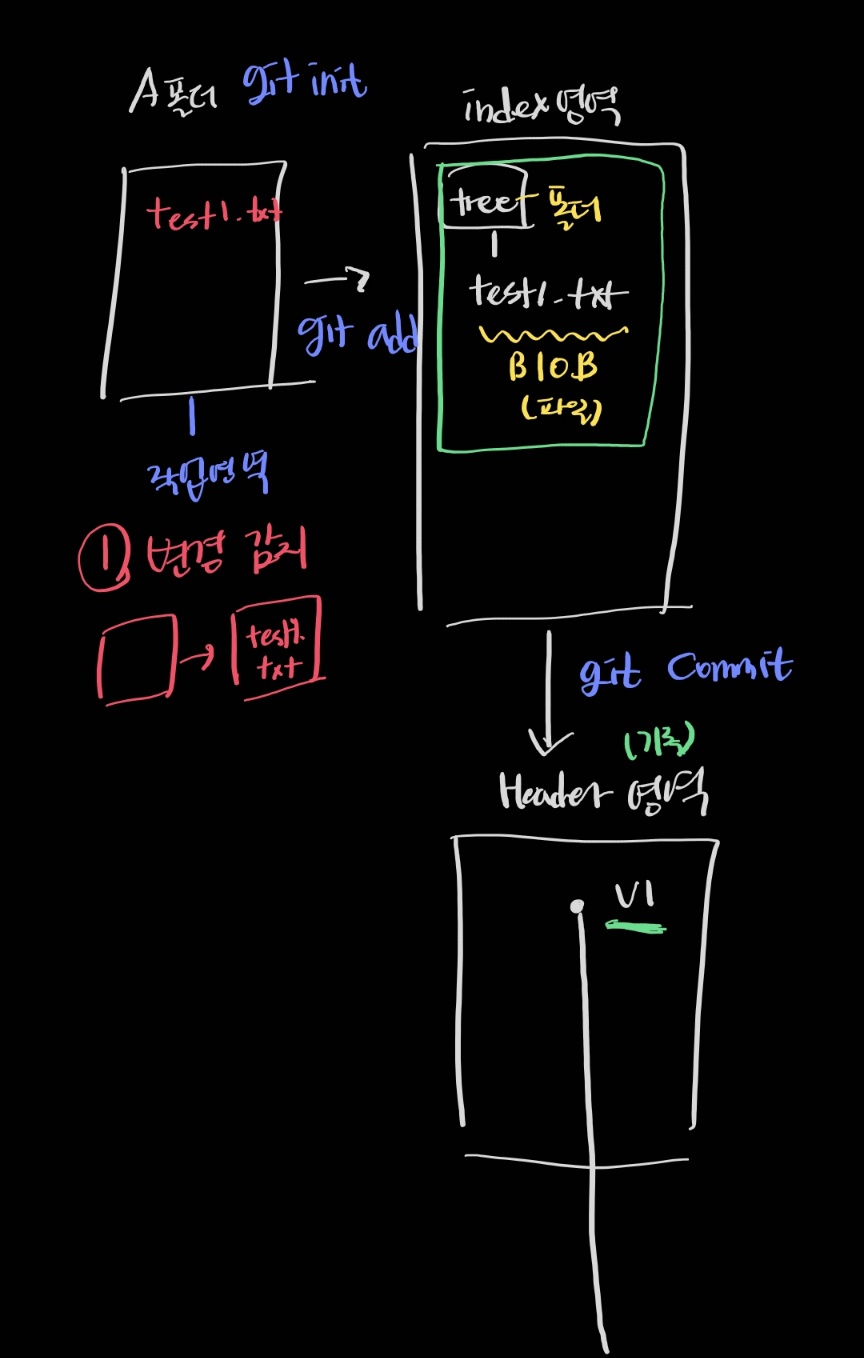 A폴더 git init
index영역
test1.txt
tree 폴더
test1.txt
git add
BlOB
(파일)
작업영역
① 변경 감지
test1.
txt
git Commit
(기록)
Header 영역
V1